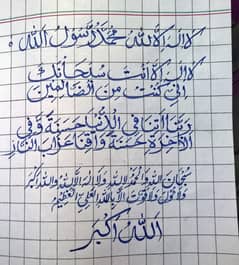 لا اله الا الله محمد رسول الله
لا اله الا انت سبحانك
انى كنت من الظالمين
ربنا اتنا في الدنيا حسنة وفي
الآخرة حسنة وقنا عذاب النار
سبحان الله والحمد لله ولا اله الا الله والله اكبر
ولا حول ولا قوة الا بالله العلي العظيم
الله اكبر